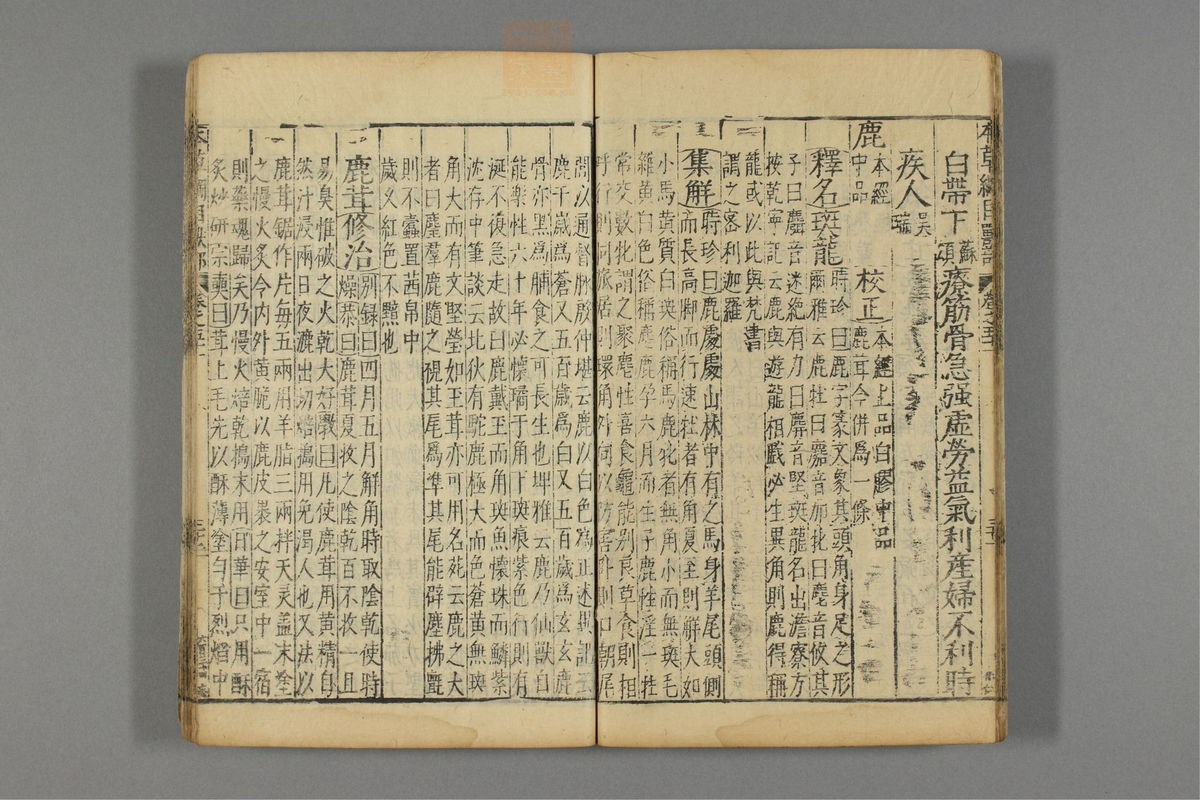 白帶下蘇頌療筋骨急强虛勞益氣利產婦不利時
疾人吳瑞
鹿本經中品 校正本經上品白膠中品鹿茸今併爲一條
釋名斑龍時珍曰鹿字篆文象其頭角身足之形爾雅云鹿牡曰麚音加牝曰麀音攸其
子曰麛音迷絶有力曰䴥音堅斑龍名出澹寮方
按乾寧記云鹿與遊龍相戲必生異角則鹿得稱
龍或以此與梵書
謂之密利迦羅
集解時珍曰鹿處處山林中有之馬身羊尾頭側而長高脚而行速牡者有角夏至則解大如
小馬黄質白斑俗稱馬鹿牝者無角小而無斑毛
雜黄白色俗稱麀鹿孕六月而生子鹿性淫一牡
常交數牝謂之聚麀性喜食龜能别良草食則相
呼行則同旅居則環角外向以防害卧則口朝尾
閭以通督脉殷仲堪云鹿以白色為正述異記云
鹿千歲爲蒼又五百歲爲白又五百歲爲玄玄鹿
骨亦黑爲脯食之可長生也埤雅云鹿乃仙獸自
能樂性六十年必懷璚于角下斑痕紫色行則有
涎不復急走故曰鹿戴玉而角斑魚懷珠而鱗紫
沈存中筆談云北狄有駝鹿極大而色蒼黄無斑
角大而有文堅瑩如玉茸亦可用名苑云鹿之大
者曰麈羣鹿隨之視其尾爲準其尾能辟塵拂氈
則不蠹置茜帛中
歲久紅色不黯也
鹿茸修治别録曰四月五月解角時取陰乾使時燥恭曰鹿茸夏收之陰乾百不收一且
易臭惟破之火乾大好斆曰凡使鹿茸用黄精自
然汁浸兩日夜漉出切焙搗用免渴人也又法以
鹿茸鋸作片每五兩用羊脂三兩拌天灵蓋末塗
之慢火炙令内外黄脆以鹿皮褁之安室中一宿
則藥魂歸矣乃慢火焙乾搗末用日華曰只用酥
炙炒研宗奭曰茸上毛先以酥薄塗勻于烈焰中